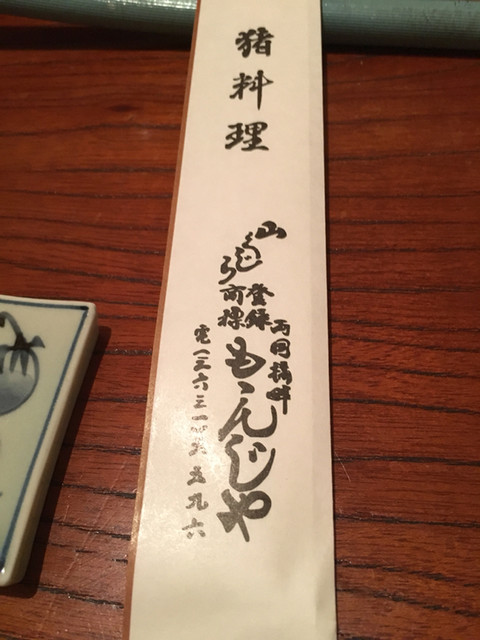 猪料理
山くじら
登録
商標
両国橋畔
もゝんじや
電(三六三一)五五九六